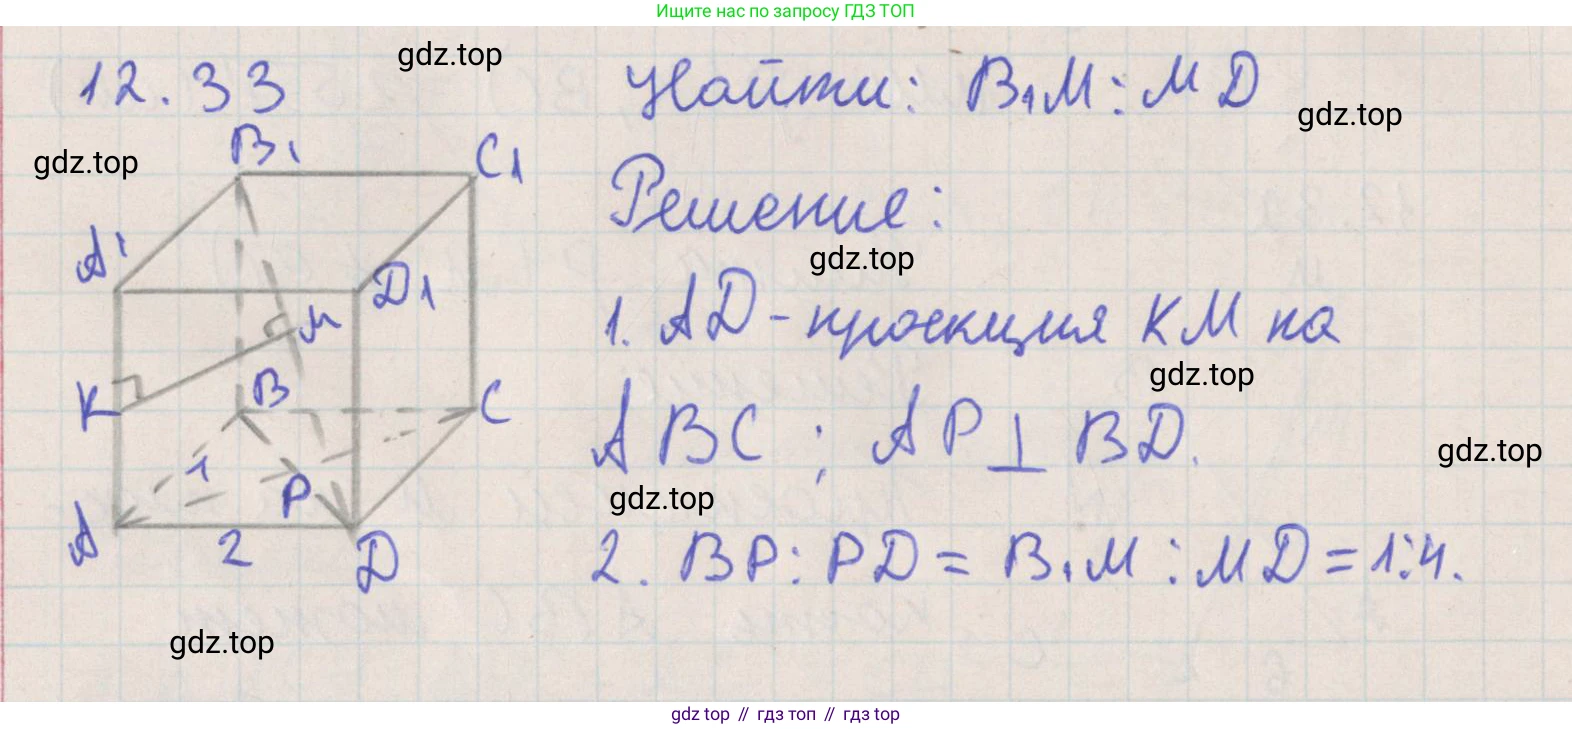 Ищите нас по запросу ГДЗ ТОП
12.33
gdz.top
Найти: B₁M : MD
gdz.top
gdz.top
B₁
C₁
Решение:
gdz.top
A¹
D₁
1. AD - проекция KM на
M
gdz.top
K
B
C
ABC ; AP ⊥ BD.
gdz.top
1
P
gdz.top
A
2
D
2. BP : PD = B₁M : MD = 1:4.
gdz.top
gdz top // гдз топ // гдз top